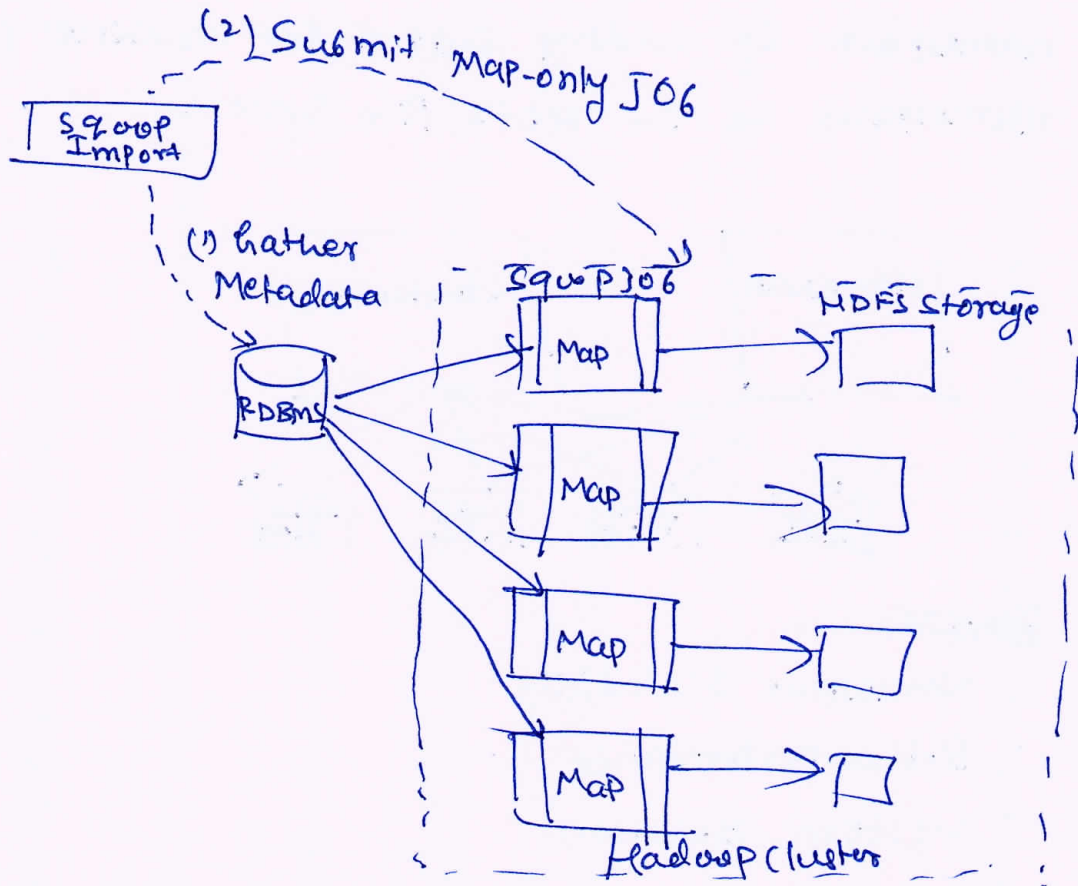 (2) Submit Map-only Job
Sqoop
Import
(1) Gather
Metadata
Sqoop Job
HDFS Storage
RDBMS
Map
Map
Map
Map
Hadoop Cluster